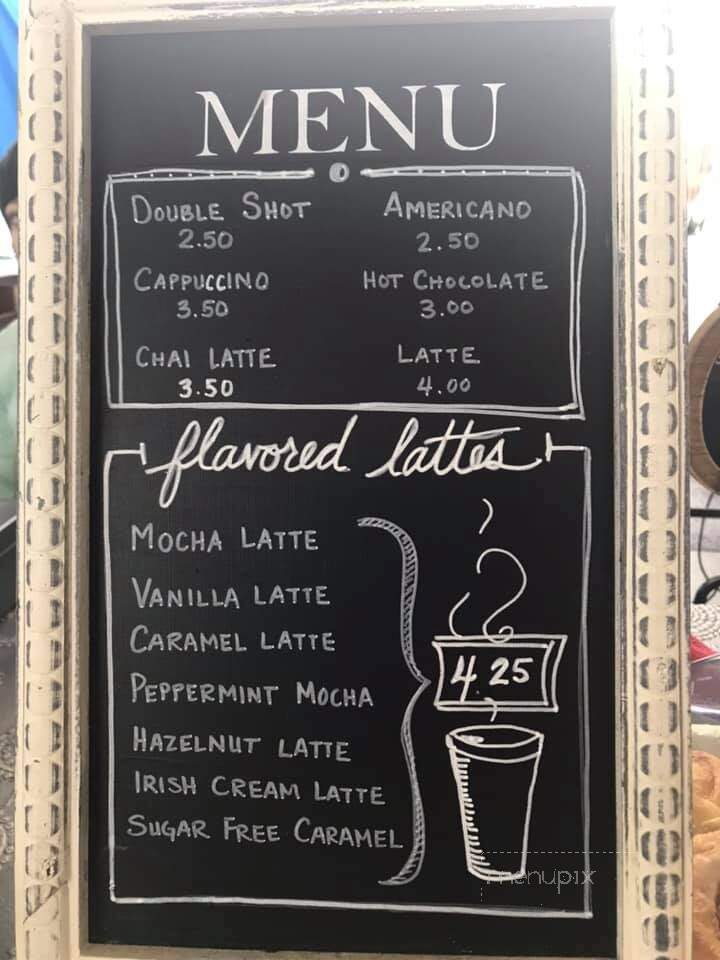 MENU
DOUBLE SHOT AMERICANO
2.50 2.50
CAPPUCCINO HOT CHOCOLATE
3.50 3.00
CHAI LATTE LATTE
3.50 4.00
flavored lattes
MOCHA LATTE
VANILLA LATTE
CARAMEL LATTE
4.25
PEPPERMINT MOCHA
HAZELNUT LATTE
IRISH CREAM LATTE
SUGAR FREE CARAMEL
menupix